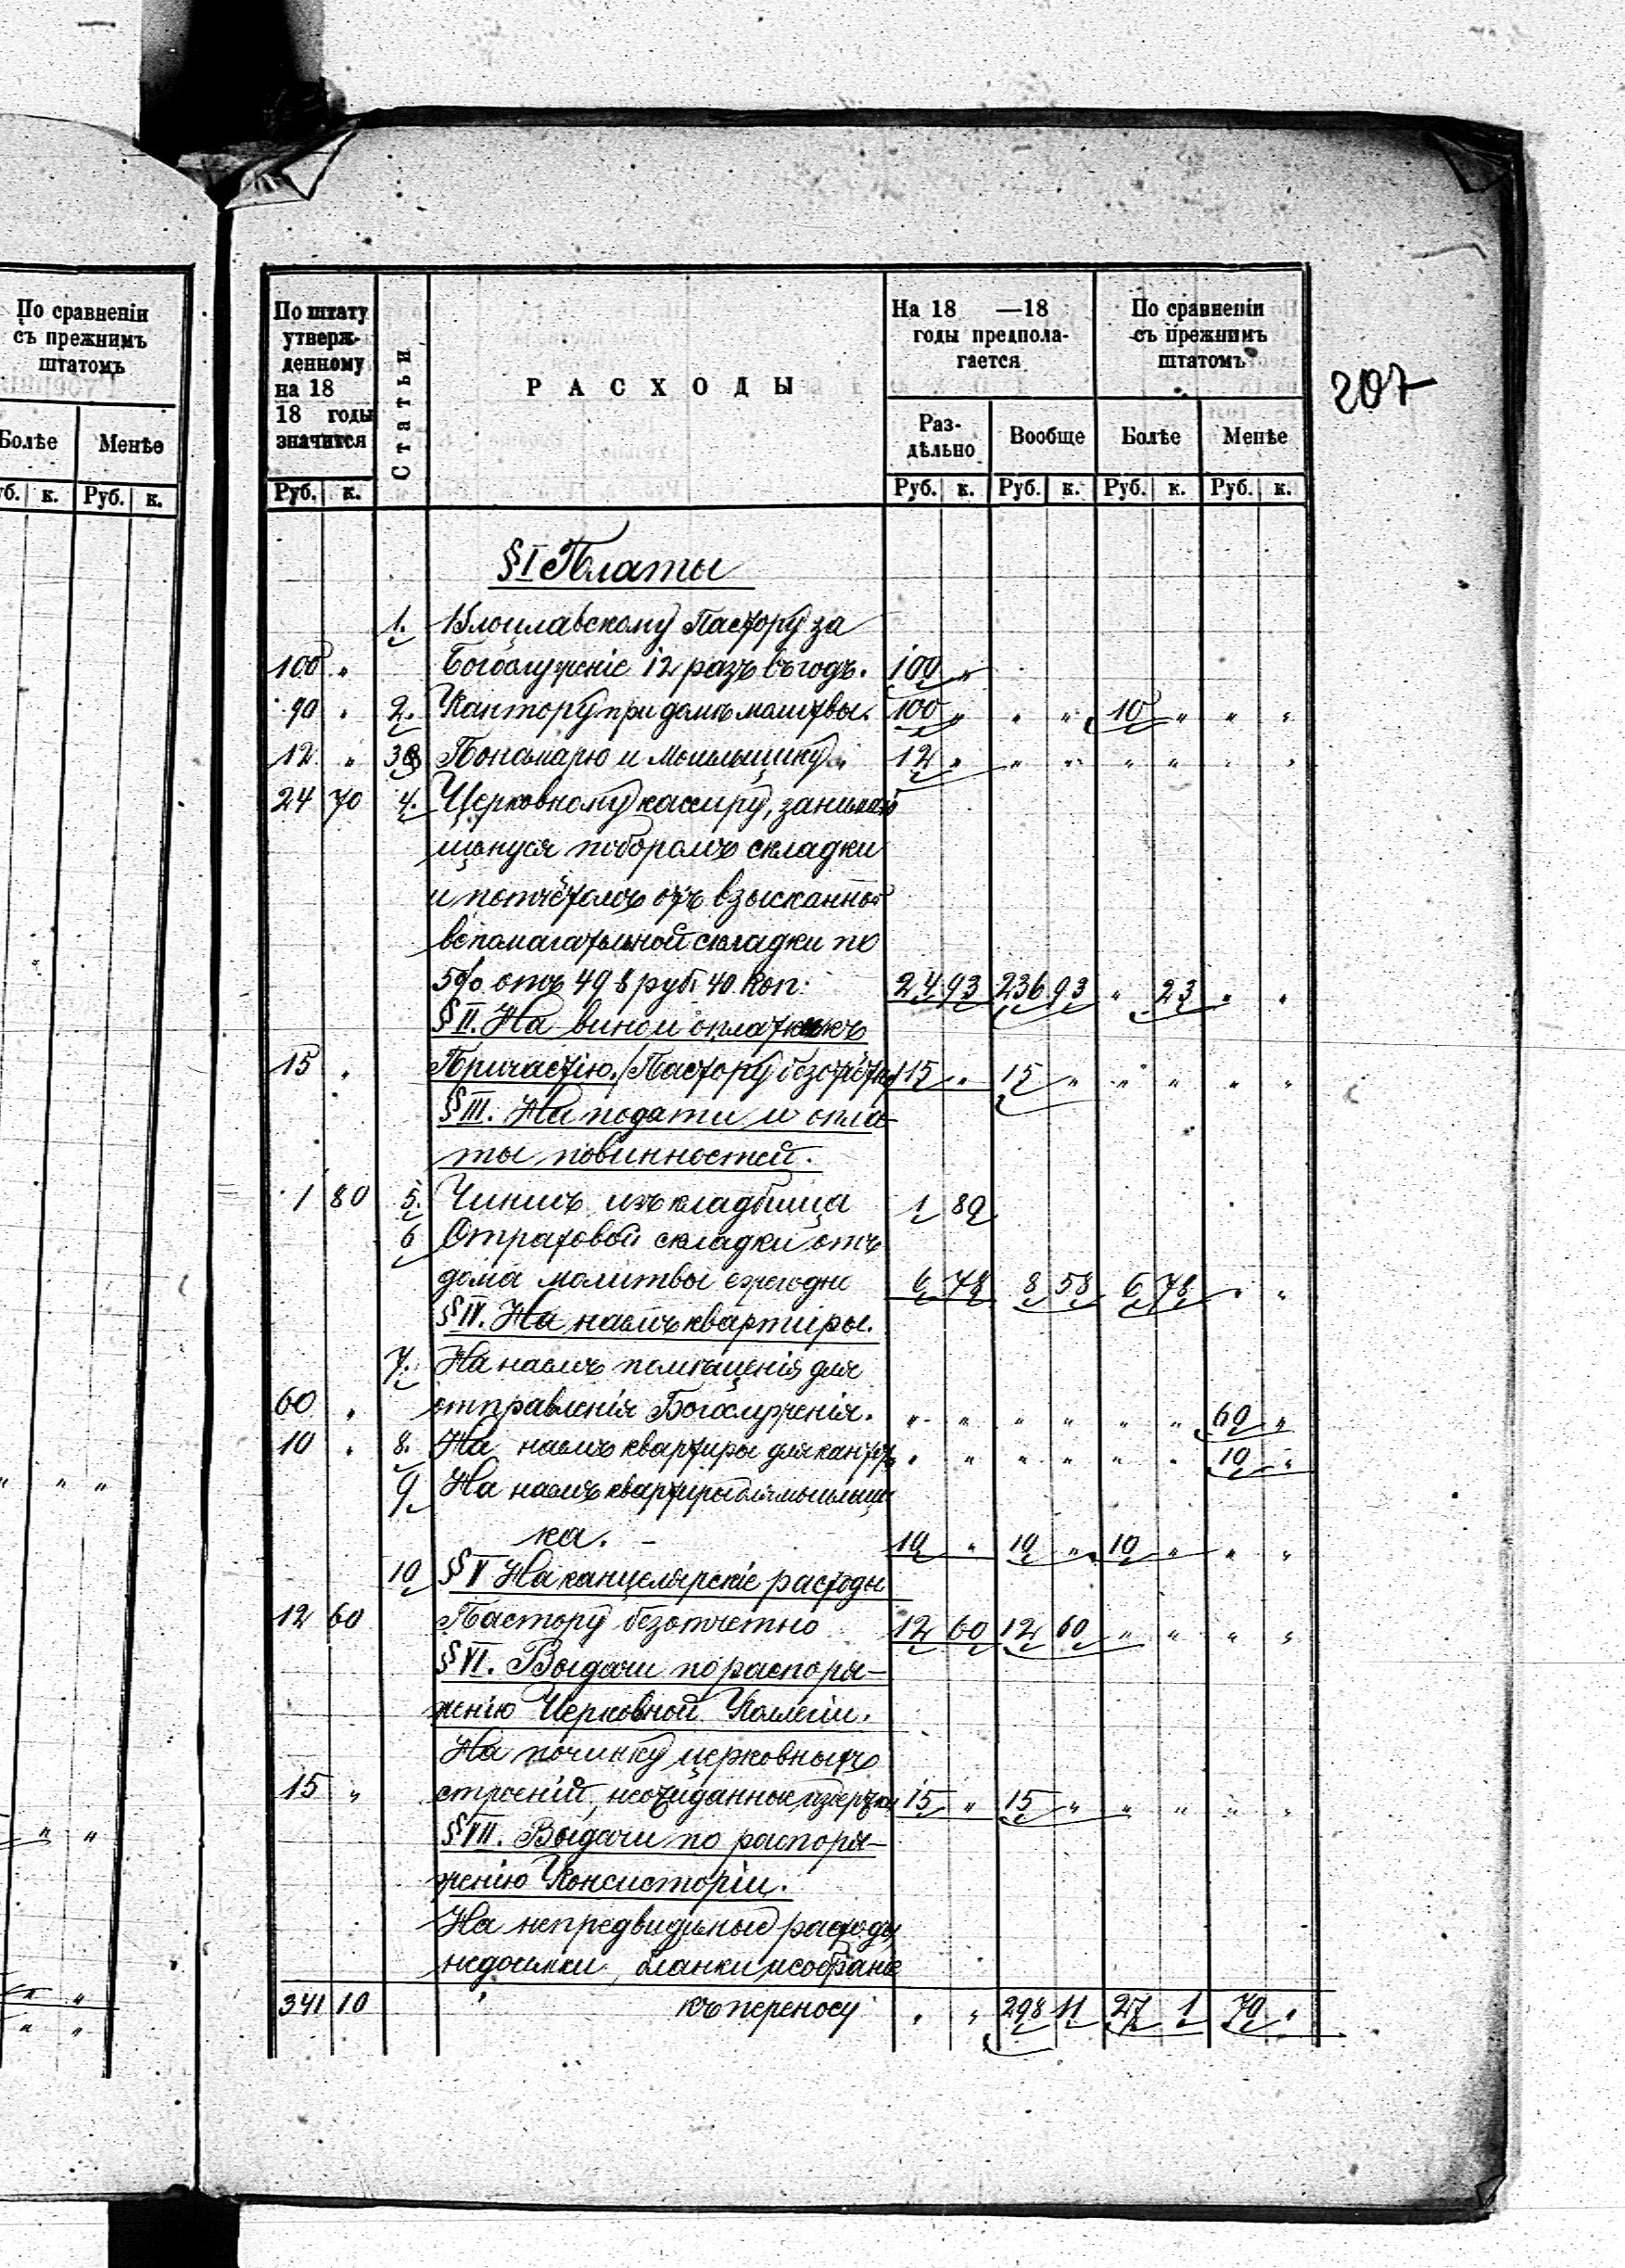 По сравненіи
съ прежнимъ
штатомъ
Болѣе Менѣе
Руб. к. Руб. к.
207
По штату
утверж-
денному
на 18
18 годы
значится
Статьи
РАСХОДЫ
На 18 —18
годы предпола-
гается
По сравненіи
съ прежнимъ
штатомъ
Раз-
дѣльно
Вообще Болѣе Менѣе
Руб. к. Руб. к. Руб. к. Руб. к. Руб. к.
§ I Платы
1. Влоцлавскому Пастору за
100 " Богослуженіе 12 разъ въ годъ. 100 "
90 " 2. Кантору при домѣ молитвы. 100 " " " 10 " " "
12 " 3 Пономарю и 12 " " " " " " "
24 70 4. Церковному кассиру, занимаю
щемуся поборомъ складки
и отъ взысканной
вспомагательной складки по
5% отъ 498 руб. 40 коп. 24 93 236 93 " 23 " "
§ II. На вино и оплатки къ
15 " Причастію. /Пастору безотчетно/ 15 " 15 " " " " "
§ III. На подати и опла-
ты повинностей.
1 80 5. Чиншъ изъ кладбища 1 80
6 Страховой складки отъ
дома молитвы ежегодно 6 78 8 58 6 78 " "
§ IV. На наемъ квартиры.
7. На наемъ помѣщенія для
60 " отправленія Богослуженія. " " " " " " 60 "
10 " 8. На наемъ квартиры для кантора " " " " " " 10 "
9 На наемъ квартиры для
ка. – 10 " 10 " 10 " " "
10 § V На канцелярскіе расходы
12 60 Пастору безотчетно 12 60 12 60 " " " "
§ VI. Выдачи по распоря-
женію Церковной Коллегіи.
На починку церковныхъ
15 " строеній, неожиданные издержки 15 " 15 " " " " "
§ VII. Выдачи по распоря-
женію Консисторіи.
На непредвидимые расходы,
недоимки, бланки и собраніе
341 10 къ переносу " " 298 11 27 1 70 "